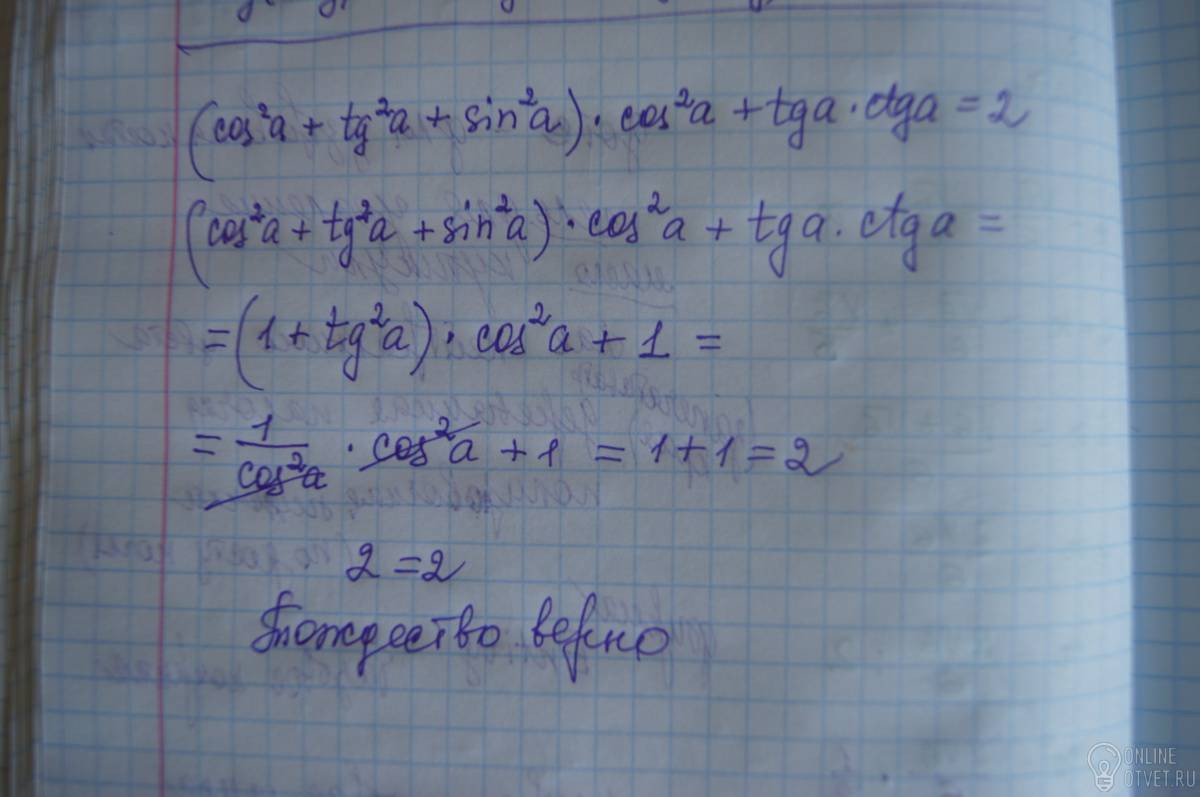 (cos²a + tg²a + sin²a) · cos²a + tga · ctga = 2
(cos²a + tg²a + sin²a) · cos²a + tga · ctga =
= (1 + tg²a) · cos²a + 1 =
= 1/cos²a · cos²a + 1 = 1 + 1 = 2
2 = 2
Тождество верно
ONLINE
OTVET.RU